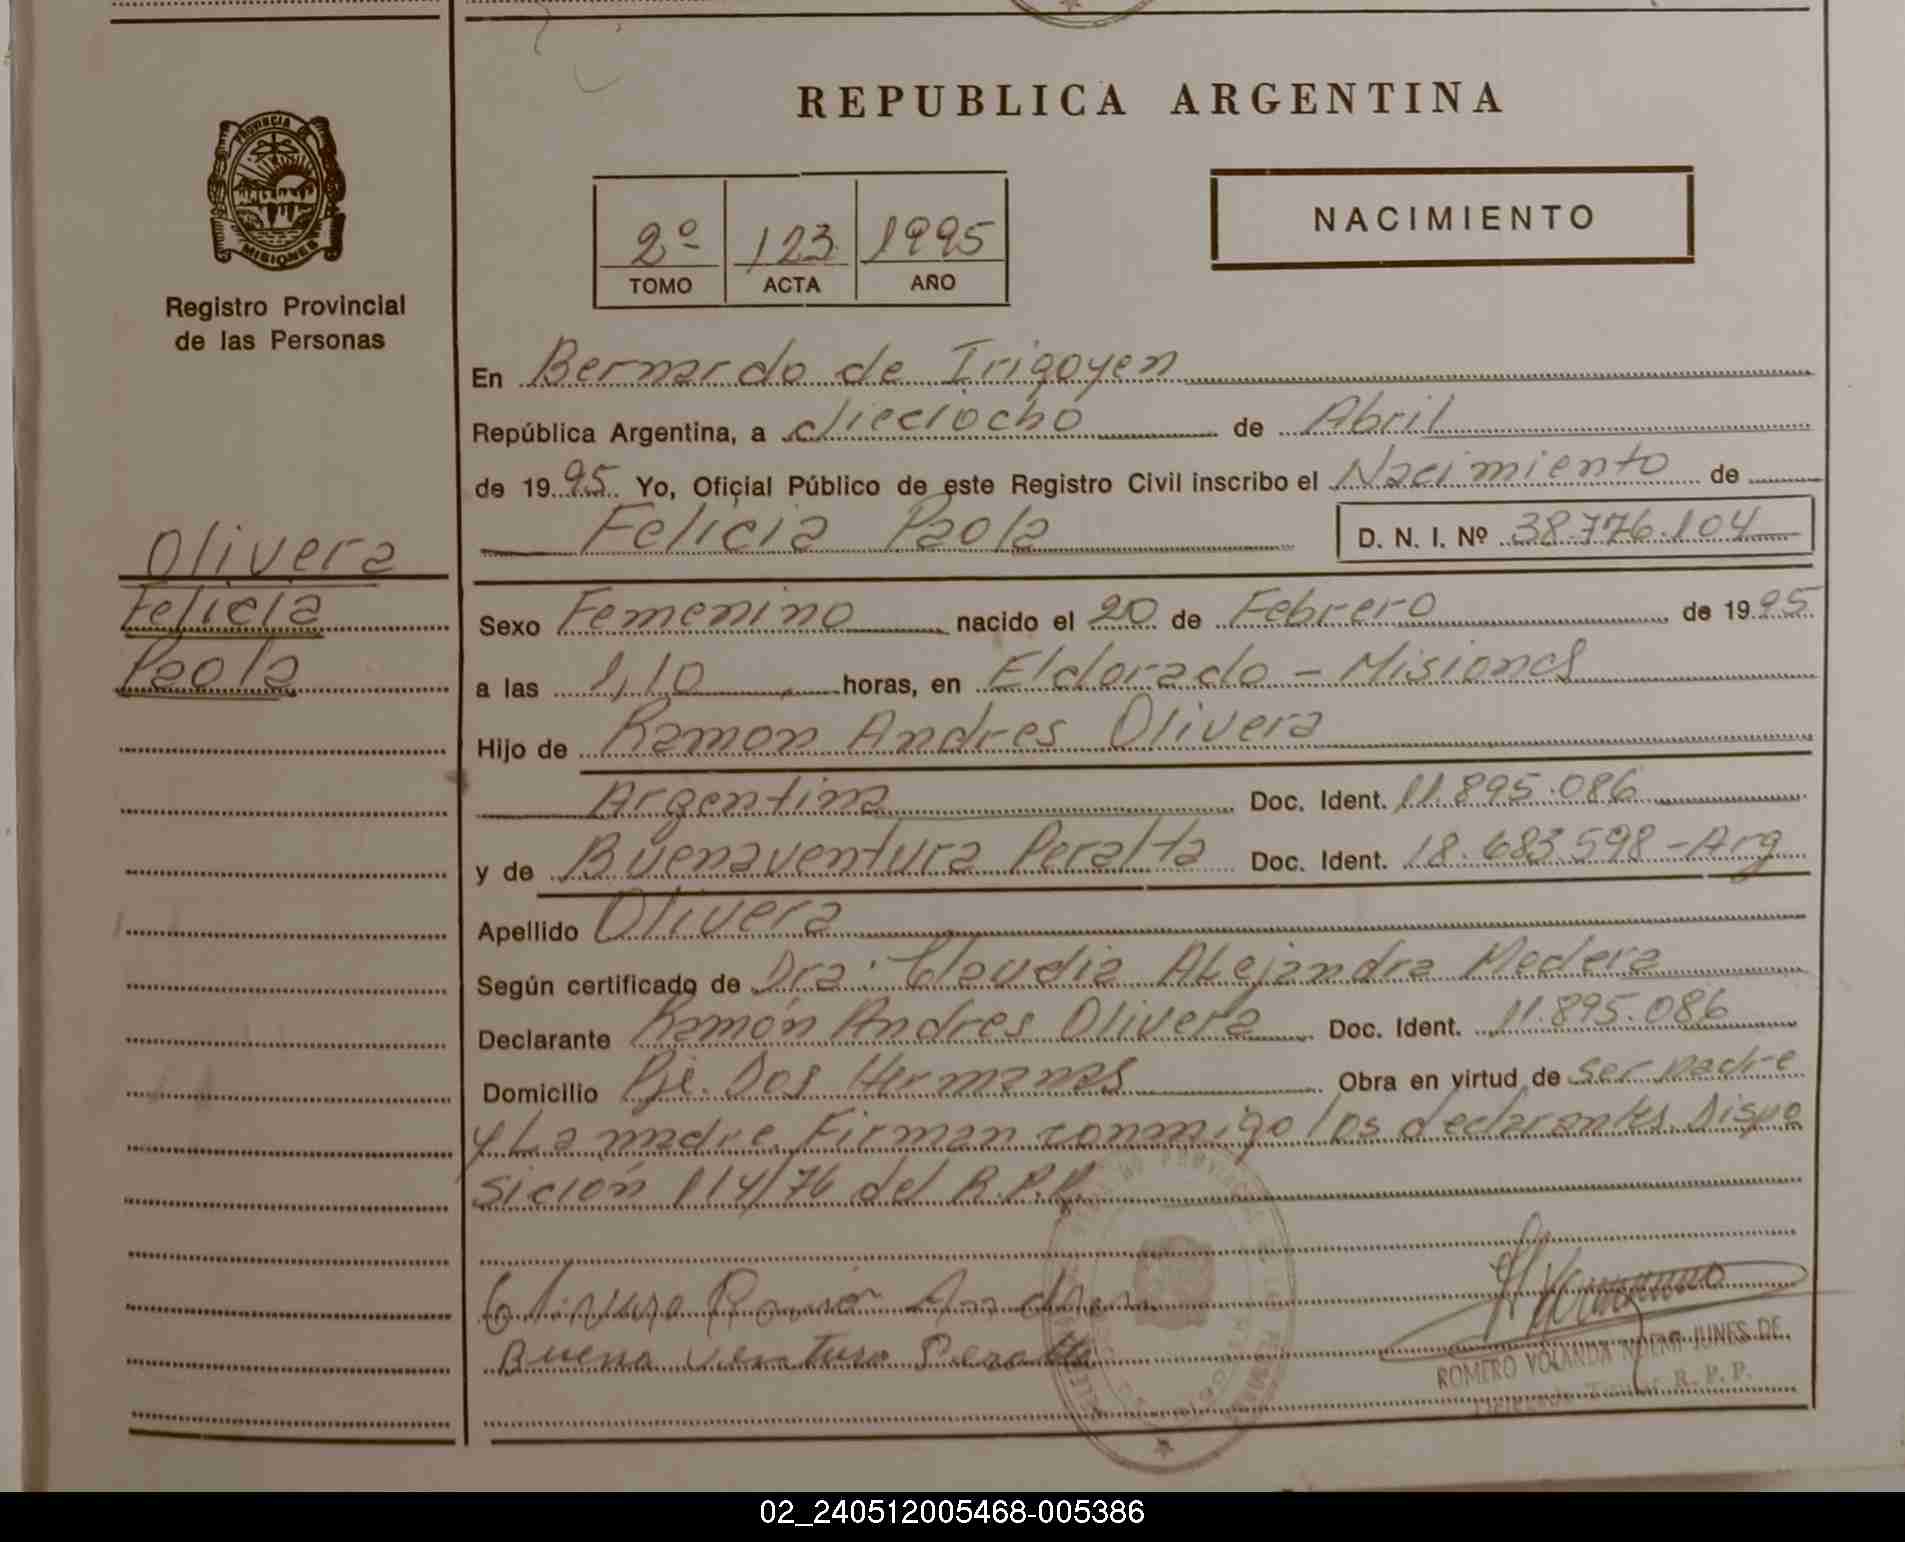 PROVINCIA DE
MISIONES
Registro Provincial
de las Personas
Olivera
Felicia
Paola
REPUBLICA ARGENTINA
2º 123 1995
TOMO ACTA AÑO
NACIMIENTO
En Bernardo de Irigoyen
República Argentina, a dieciocho de Abril
de 1995 Yo, Oficial Público de este Registro Civil inscribo el Nacimiento de
Felicia Paola D. N. I. Nº 38.776.104
Sexo Femenino nacido el 20 de Febrero de 1995
a las 1,10 horas, en Eldorado - Misiones
Hijo de Ramon Andres Olivera
Argentina Doc. Ident. 11.895.086
y de Buenaventura Peralta Doc. Ident. 18.683.598 - Arg
Apellido Olivera
Según certificado de Dra. Claudia Alejandra Medera
Declarante Ramón Andres Olivera Doc. Ident. 11.895.086
Domicilio Pje. Dos Hermanas Obra en virtud de ser padre
y La madre. Firman conmigo los declarantes. Dispo
sición 114/76 del R.P.P.
Olivera Ramón Andres
Buena ventura Peralta
ROMERO YOLANDA NOEMI JUNES DE
R. P. P.
02_240512005468-005386